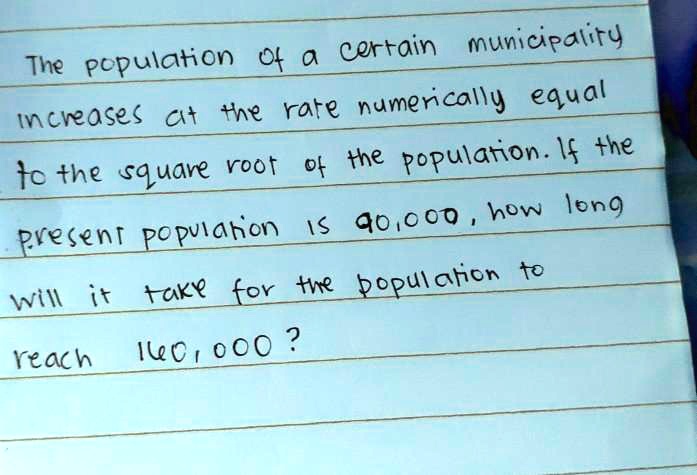 The population of a certain municipality
increases at the rate numerically equal
to the square root of the population. If the
present population is 90,000, how long
will it take for the population to
reach 160,000?